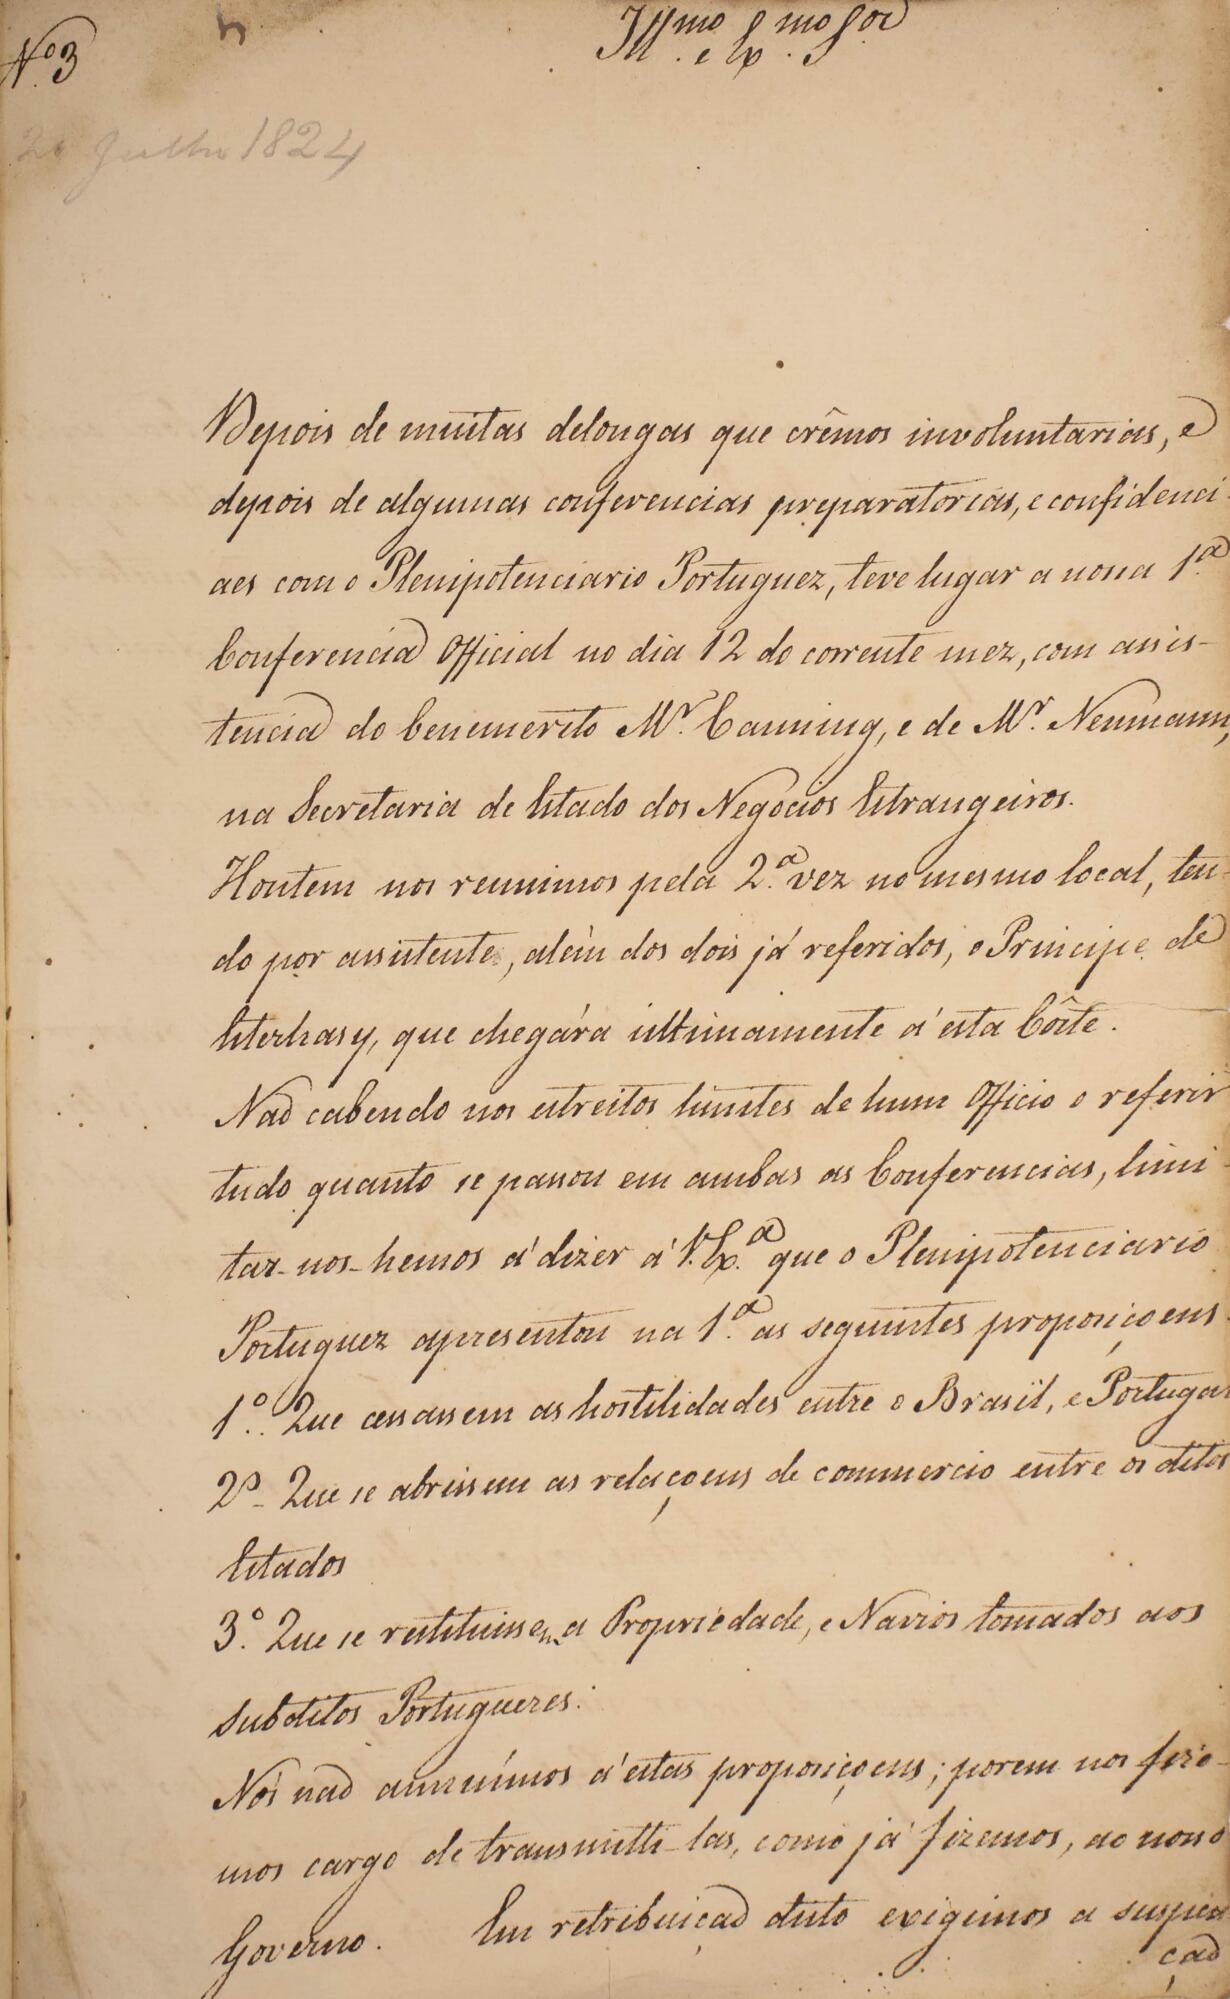 Nº 3
Illmo. e Exmo. Sor
20 Julho 1824
Depois de muitas delongas que crêmos involuntarias, e
depois de algumas conferencias preparatorias, e confidenci-
aes com o Plenipotenciario Portuguez, teve lugar a nossa 1.ª
Conferencia Official no dia 12 do corrente mez, com assis-
tencia do benemerito Mr. Canning, e de Mr. Neumann,
na Secretaria de Estado dos Negocios Estrangeiros.
Hontem nos reunimos pela 2.ª vez no mesmo local, ten-
do por assistente, alèm dos dois já referidos, o Principe de
Esterhasy, que chegára ultimamente á esta Côrte.
Naõ cabendo nos estreitos limites de hum Officio o referir
tudo quanto se passou em ambas as Conferencias, limi-
tar-nos-hemos á dizer á V. Ex.ª que o Plenipotenciario
Portuguez apresentou na 1.ª as seguintes proposiçoens.
1.º Que cessassem as hostilidades entre o Brasil, e Portugal
2º Que se abrissem as relaçoens de commercio entre os ditos
Estados
3.º Que se restituissem a Propriedade, e Navios tomados aos
subditos Portuguezes.
Nós naõ annuímos á estas proposiçoens; porem nos fize-
mos cargo de transmitti-las, como já fizemos, ao nosso
Governo. Em retribuiçaõ disto exigimos a suspica
çaõ